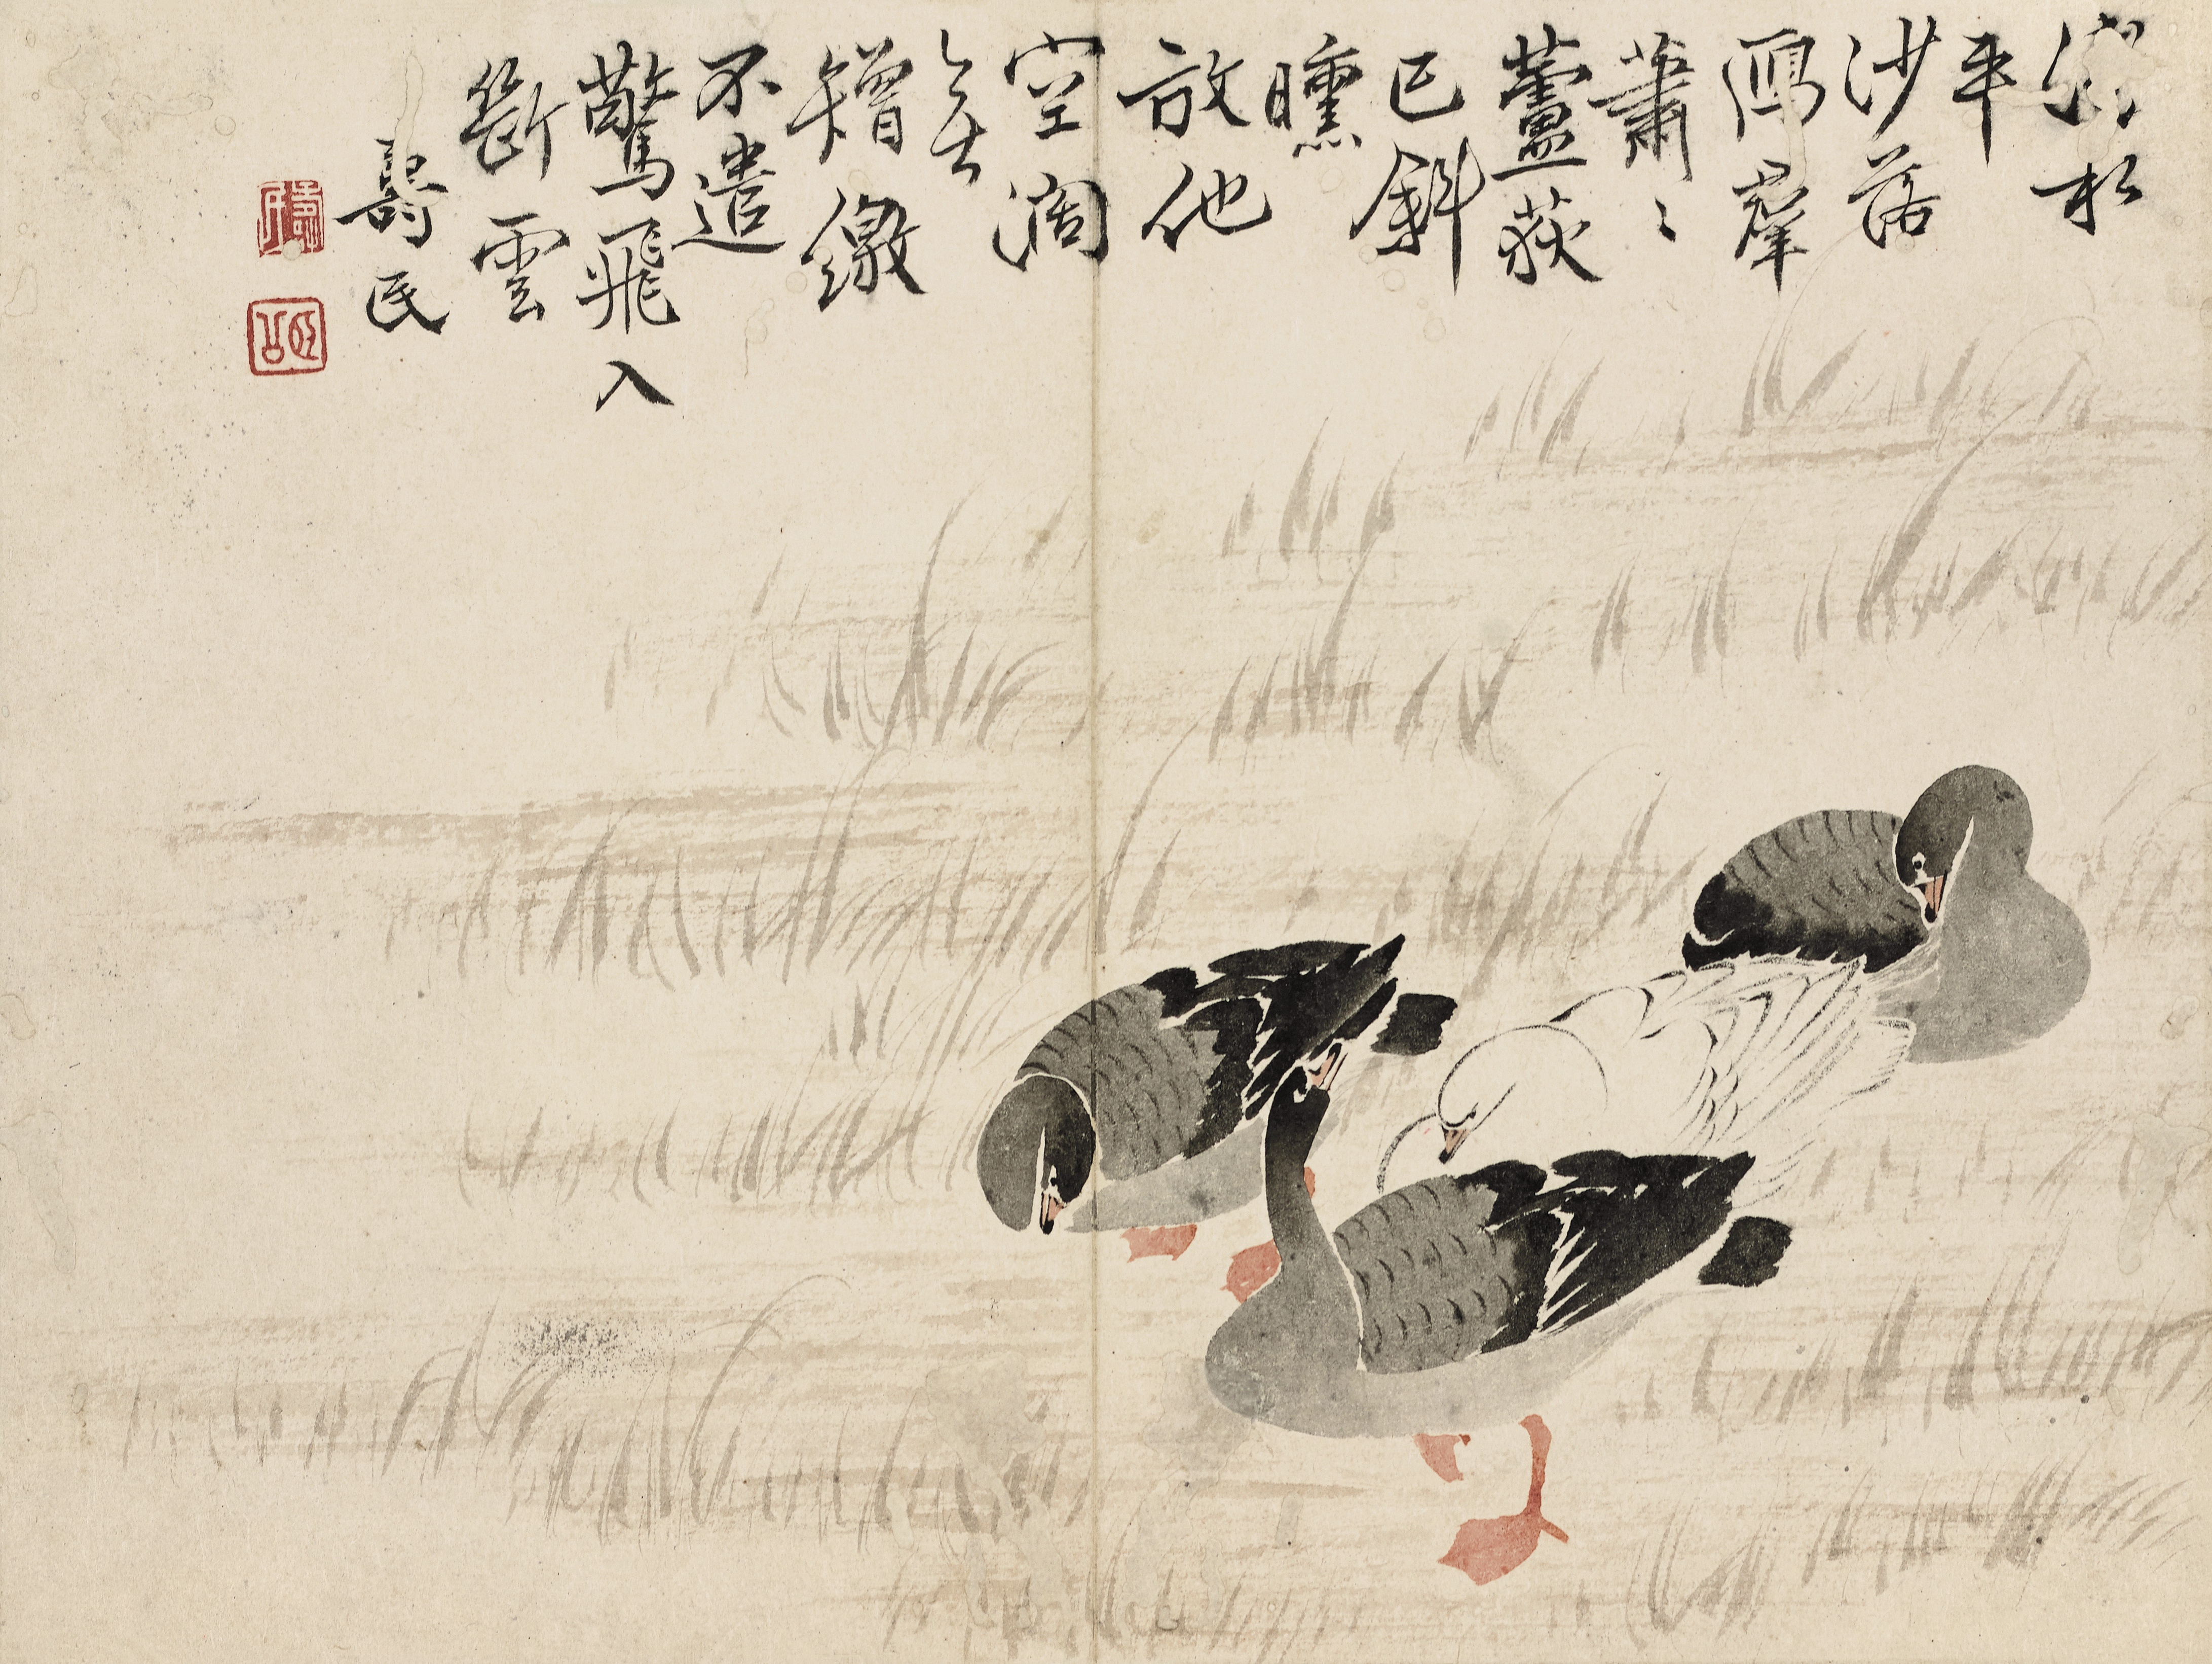 平
沙落
鴈羣
蕭〻
蘆荻
已斜
曛
放他
空闊
無
矰繳
不遣
驚飛入
斷雲
壽民
頤公